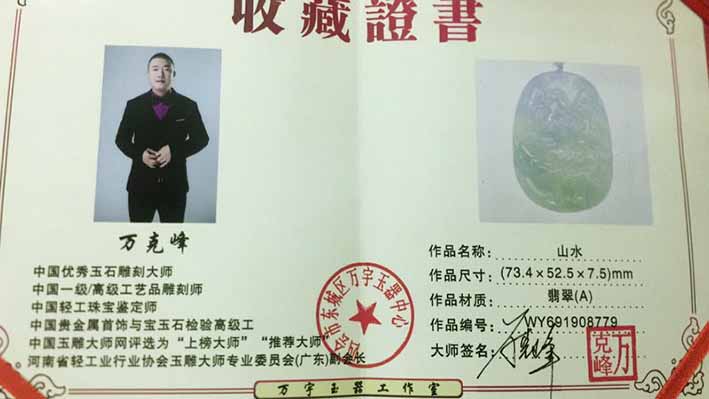 收藏證書
万克峰
中国优秀玉石雕刻大师
中国一级/高级工艺品雕刻师
中国轻工珠宝鉴定师
中国贵金属首饰与宝玉石检验高级工
中国玉雕大师网评选为“上榜大师” “推荐大师”
河南省轻工业行业协会玉雕大师专业委员会(广东)副会长
市东城区万宇玉器中心
作品名称: 山水
作品尺寸: (73.4×52.5×7.5)mm
作品材质: 翡翠(A)
作品编号: WY691908779
大师签名:
万克峰
万宇玉器工作室